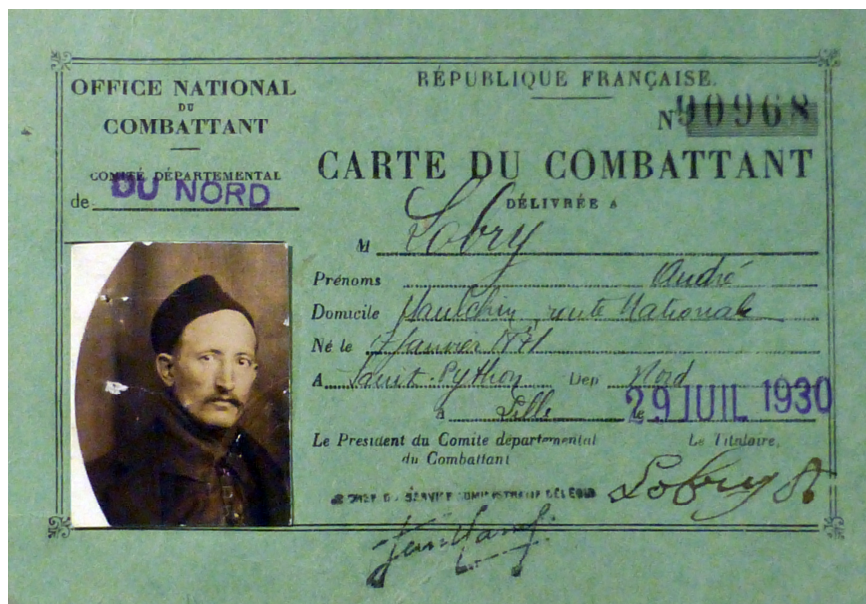 OFFICE NATIONAL
DU
COMBATTANT
COMITÉ DÉPARTEMENTAL
de DU NORD
RÉPUBLIQUE FRANÇAISE.
N 90968
CARTE DU COMBATTANT
DÉLIVRÉE A
M Lobry
Prénoms André
Domicile route Nationale
Né le 7 Janvier
A Saint-Python Dep Nord
à Lille le 29 JUIL 1930
Le President du Comite départemental
du Combattant
Le Titulaire,
LE CHEF DU SERVICE ADMINISTRATIF DÉLÉGUÉ
Lobry